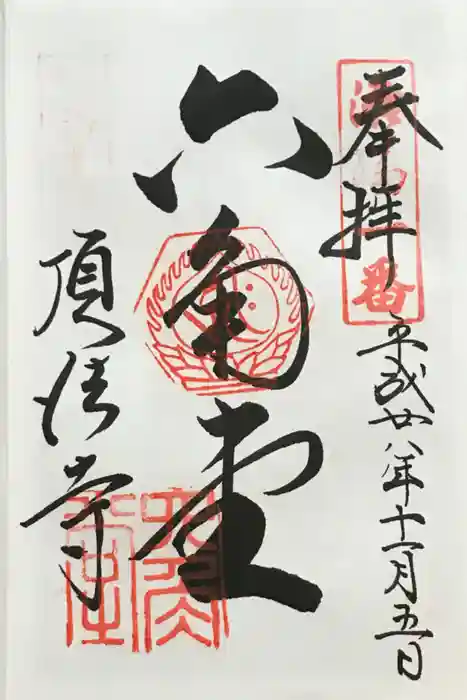 奉拝
平成廿八年十一月五日
六角堂
頂法寺